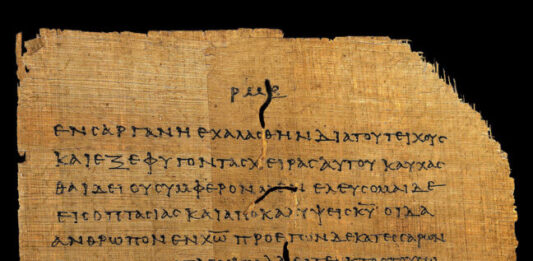 ρμε
ΕΝϹΑΡΓΑΝΗΕΧΑΛΑϹΘΗΝΔΙΑΤΟΥΤΕΙΧΟΥϹ
ΚΑΙΕΞΕΦΥΓΟΝΤΑϹΧΕΙΡΑϹΑΥΤΟΥΚΑΥΧΑϹ
ΘΑΙΔΕΙΟΥϹΥΜΦΕΡΟΝΜΕΝΕΛΕΥϹΟΜΑΙΔΕ
ΕΙϹΟΠΤΑϹΙΑϹΚΑΙΑΠΟΚΑΛΥΨΕΙϹΚ̅Υ̅ΟΙΔΑ
ΑΝΘΡΩΠΟΝΕΝΧ̅Ω̅ΠΡΟΕΤΩΝΔΕΚΑΤΕϹϹΑΡΩΝ